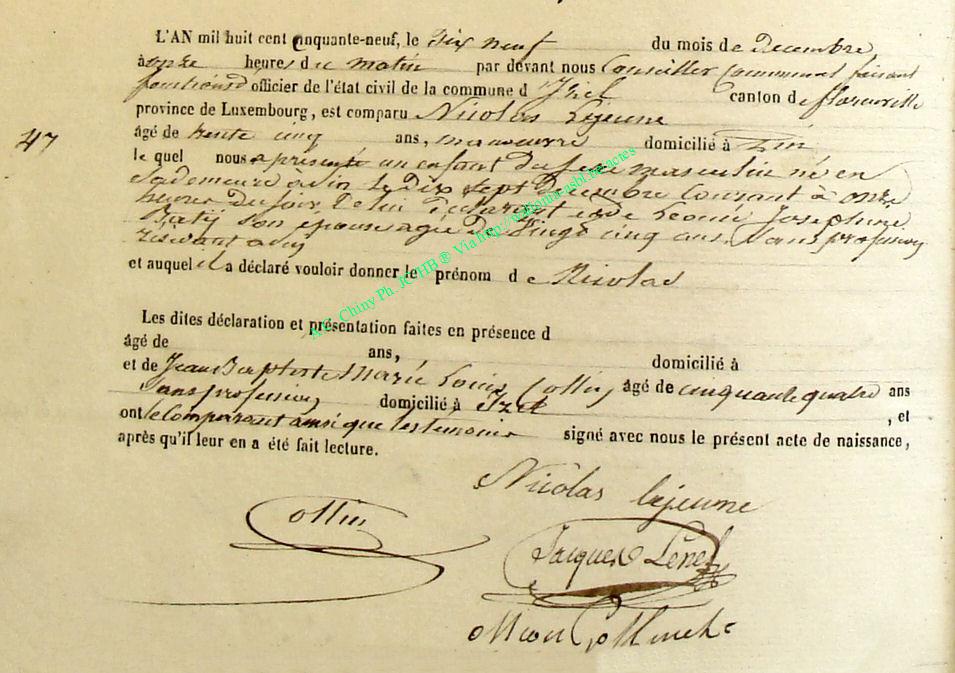 L'AN mil huit cent cinquante-neuf, le dix neuf du mois de Decembre
à onze heures du matin par devant nous Conseiller Communal faisant
fonctions d officier de l'état civil de la commune d'Izel canton de florenville
province de Luxembourg, est comparu Nicolas Lejeune
47
âgé de trente cinq ans, manoeuvre domicilié à
le quel nous a présenté un enfant du sexe masculin né en
Sa demeure à le dix sept Decembre Courant à onze
heures du soir de lui déclarant et de Leonie Josephine
Baty son épouse agée de Vingt cinq ans, Sans profession
et auquel il a déclaré vouloir donner le prénom de Nicolas
Les dites déclaration et présentation faites en présence d
âgé de ans, domicilié à
et de Jean Baptiste Marie Louis Collin, âgé de cinquante quatre ans
Sans profession domicilié à Izel , et
ont le Comparant ainsi que les temoins signé avec nous le présent acte de naissance,
après qu'il leur en a été fait lecture.
Nicolas Lejeune
Collin
Jacques
A.C. Chiny Ph. JC HB ® Via http://wallonia-asbl.be/actes